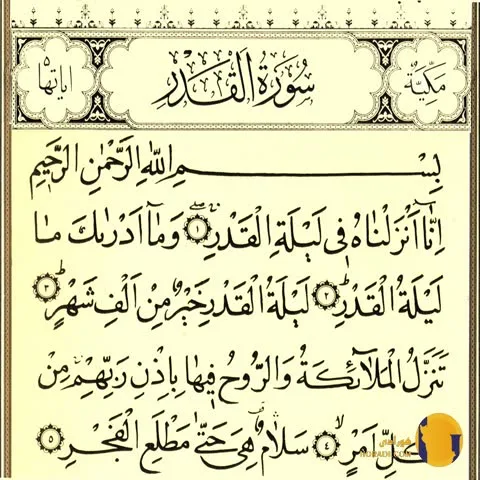 مکیّة سُورَةُ القَدْرِ ایاتها ۵
بِسْمِ اللّٰهِ الرَّحْمٰنِ الرَّحیمِ
اِنّٰا اَنْزَلْنٰاهُ فی لَیْلَةِ الْقَدْرِ ۱ وَ مٰا اَدْرٰیكَ مٰا
لَیْلَةُ الْقَدْرِ ۲ لَیْلَةُ الْقَدْرِ خَیْرٌ مِنْ اَلْفِ شَهْرٍ ۳
تَنَزَّلُ الْمَلاٰئِكَةُ وَالرُّوحُ فیهٰا بِاِذْنِ رَبِّهِمْ مِنْ
كُلِّ اَمْرٍ ۴ سَلاٰمٌ هِیَ حَتّٰی مَطْلَعِ الْفَجْرِ ۵